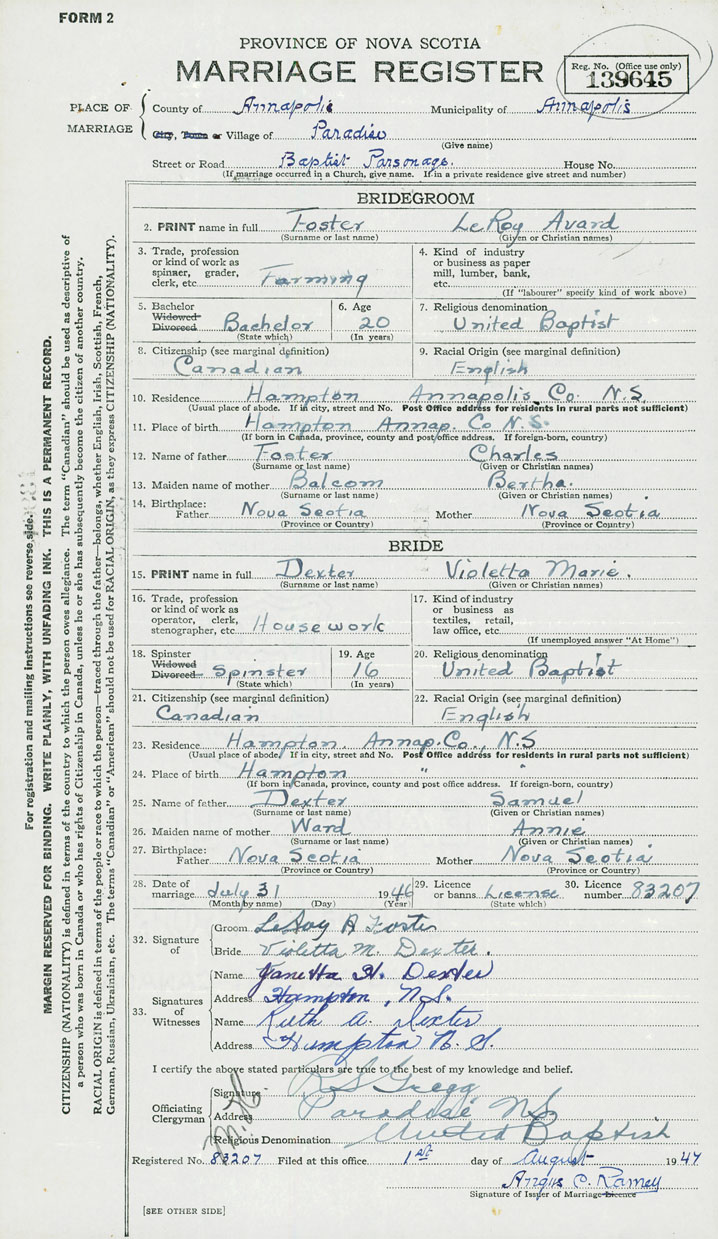 FORM 2
PROVINCE OF NOVA SCOTIA
MARRIAGE REGISTER
Reg. No. (Office use only)
139645
PLACE OF MARRIAGE
County of Annapolis Municipality of Annapolis
City, Town or Village of Paradise
(Give name)
Street or Road Baptist Parsonage. House No.
(If marriage occurred in a Church, give name. If in a private residence give street and number)
BRIDEGROOM
2. PRINT name in full Foster LeRoy Avard
(Surname or last name) (Given or Christian names)
3. Trade, profession or kind of work as spinner, grader, clerk, etc. Farming
4. Kind of industry or business as paper mill, lumber, bank, etc.
(If "labourer" specify kind of work above)
5. Bachelor Widowed Divorced Bachelor
(State which)
6. Age 20
(In years)
7. Religious denomination
United Baptist
8. Citizenship (see marginal definition)
Canadian
9. Racial Origin (see marginal definition)
English
10. Residence Hampton Annapolis Co. N.S.
(Usual place of abode. If in city, street and No. Post Office address for residents in rural parts not sufficient)
11. Place of birth Hampton Annap. Co N.S.
(If born in Canada, province, county and post office address. If foreign-born, country)
12. Name of father Foster Charles
(Surname or last name) (Given or Christian names)
13. Maiden name of mother Balcom Bertha.
(Surname or last name) (Given or Christian names)
14. Birthplace: Father Nova Scotia Mother Nova Scotia
(Province or Country) (Province or Country)
BRIDE
15. PRINT name in full Dexter Violetta Marie.
(Surname or last name) (Given or Christian names)
16. Trade, profession or kind of work as operator, clerk, stenographer, etc. Housework
17. Kind of industry or business as textiles, retail, law office, etc.
(If unemployed answer "At Home")
18. Spinster Widowed Divorced Spinster
(State which)
19. Age 16
(In years)
20. Religious denomination
United Baptist
21. Citizenship (see marginal definition)
Canadian
22. Racial Origin (see marginal definition)
English
23. Residence Hampton, Annap. Co., N.S
(Usual place of abode. If in city, street and No. Post Office address for residents in rural parts not sufficient)
24. Place of birth Hampton " "
(If born in Canada, province, county and post office address. If foreign-born, country)
25. Name of father Dexter Samuel
(Surname or last name) (Given or Christian names)
26. Maiden name of mother Ward Annie
(Surname or last name) (Given or Christian names)
27. Birthplace: Father Nova Scotia Mother Nova Scotia
(Province or Country) (Province or Country)
28. Date of marriage July 31 1946
(Month by name) (Day) (Year)
29. Licence or banns License
(State which)
30. Licence number 83207
32. Signature of
Groom LeRoy A Foster
Bride Violetta M. Dexter.
33. Signatures of Witnesses
Name Vanetta H. Dexter
Address Hampton, N.S.
Name Ruth A. Dexter
Address Hampton N.S.
I certify the above stated particulars are true to the best of my knowledge and belief.
Officiating Clergyman
Signature R S Gregg
Address Paradise N.S.
Religious Denomination United Baptist
Registered No. 83207 Filed at this office 1st day of August 1947
Angus C. Ramey
Signature of Issuer of Marriage Licence
[SEE OTHER SIDE]
For registration and mailing instructions see reverse side.
MARGIN RESERVED FOR BINDING. WRITE PLAINLY, WITH UNFADING INK. THIS IS A PERMANENT RECORD.
CITIZENSHIP (NATIONALITY) is defined in terms of the country to which the person owes allegiance. The term "Canadian" should be used as descriptive of
a person who was born in Canada or who has rights of Citizenship in Canada, unless he or she has subsequently become the citizen of another country.
RACIAL ORIGIN is defined in terms of the people or race to which the person—traced through the father—belongs, whether English, Irish, Scottish, French,
German, Russian, Ukrainian, etc. The terms "Canadian" or "American" should not be used for RACIAL ORIGIN, as they express CITIZENSHIP (NATIONALITY).